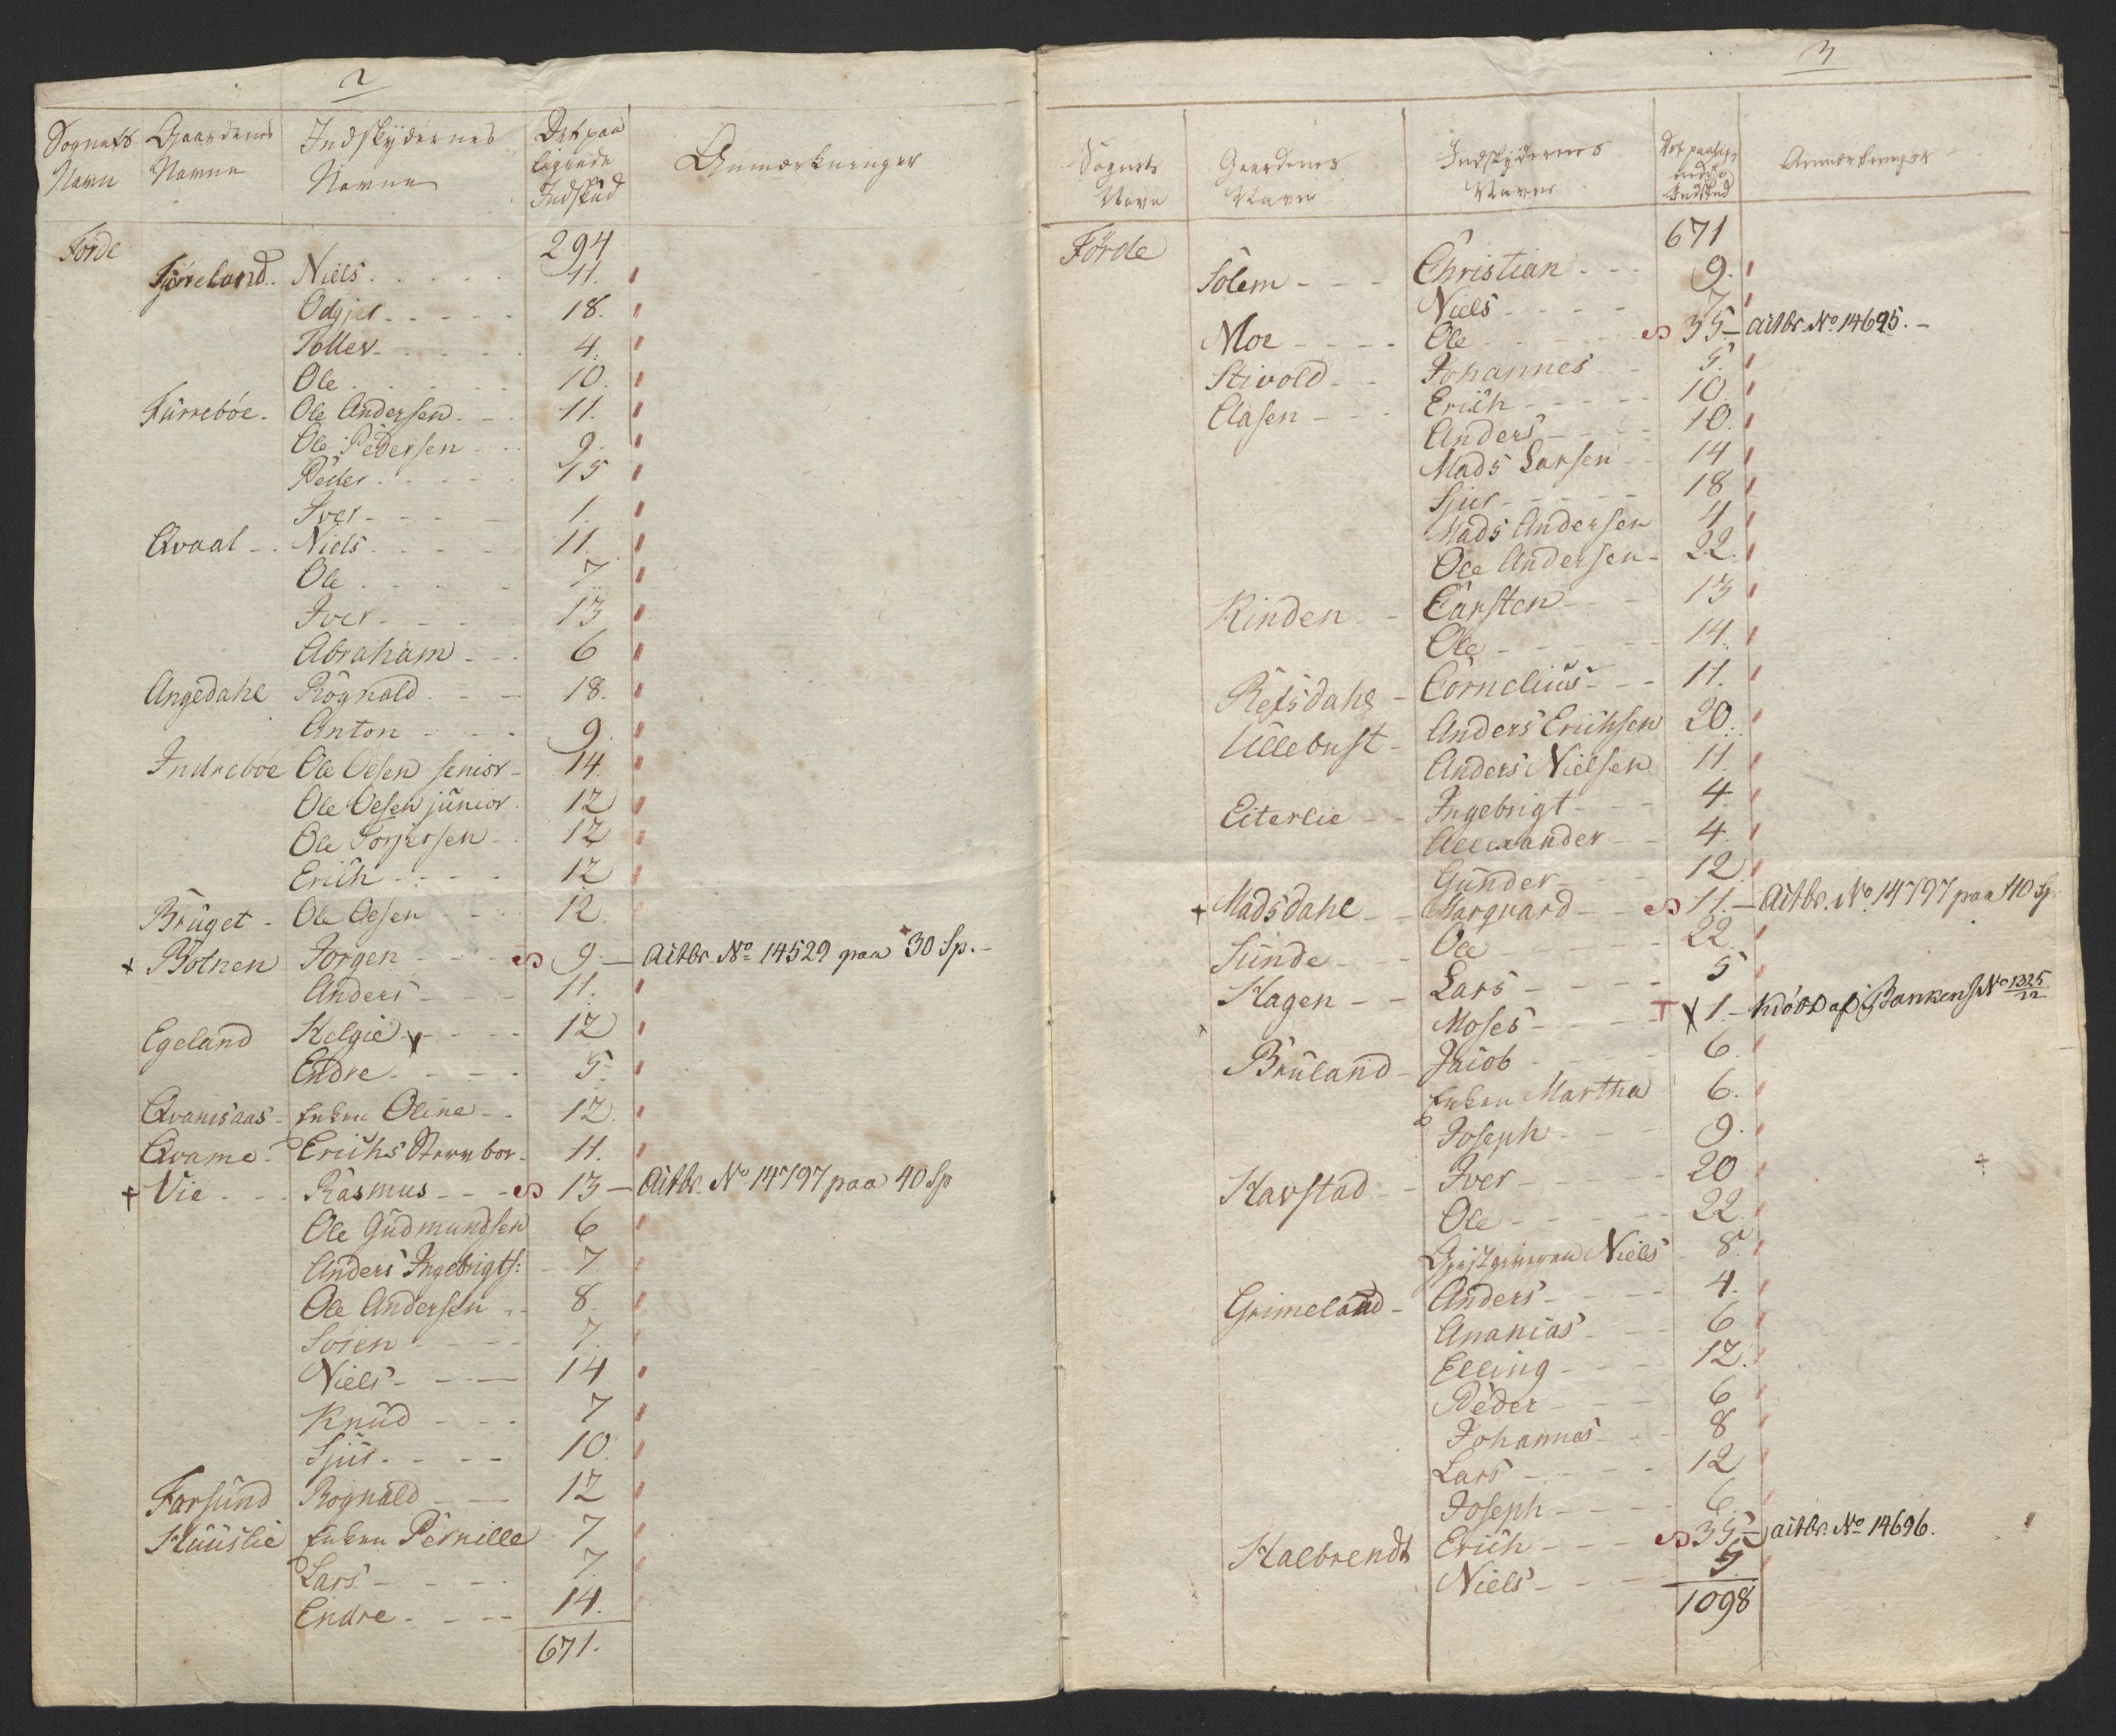 2
Sognets Navn | Gaardenes Navne | Indskydernes Navne | Det paa liggende Indskud | Anmærkninger
Förde 294
Fjöreland. Niels 11.
Odgjer 18.
Tollev 4.
Ole 10.
Furreböe. Ole Andersen 11.
Ole Pedersen 9.
Peder 15
Iver 1.
Qvaal Niels 11.
Ole 7.
Iver 13
Abraham 6
Angedahl Rognald 18.
Anton 9.
Indreböe Ole Olsen senior 14.
Ole Olsen junior 12
Ole Torgersen 12
Erich 12
Bruget Ole Olsen 12.
+ Botnen Jörgen 9 – Actbr. No 14529 paa 30 Sp.
Anders 11.
Egeland Helgie 12
Endre 5.
Qvamsaas Enken Oline 12.
Qvame Erichs Stervboe 11.
+ Vie Rasmus 13 – Actbr. No 14797 paa 40 Sp
Ole Gudmundsen 6
Anders Ingebrigts: 7
Ole Andersen 8.
Sören 7.
Niels 14
Knud 7
Sjur 10.
Farsund Rognald 12
Huuslie Enken Pernille 7
Lars 7.
Endre 14.
671.
3
Sognets Navn | Gaardenes Navne | Indskydernes Navne | Det paalig- | Indskud | Anmærkninger
Förde 671
Solem Christian 9.
Niels 7
Moe Ole 35 – actbr. No 14695.
Stivold Johannes 5.
Clasen Erich 10.
Anders 10.
Mads Larsen 14
Sjur 18
Mads Andersen 4
Ole Andersen 22.
Kinden Carsten 13
Ole 14.
Refsdahl Cornelius 11.
Ullebust Anders Erichsen 20.
Anders Nielsen 11.
Eiterlie Ingebrigt 4.
Allexander 4.
Gunder 12.
+ Madsdahl Marqvard 11. – Actbr. No 14797 paa 40 Sp
Sunde Ole 22.
Hagen Lars 5
Moses 1. – kiöbt af Banken No 1325/22
Bruland Jacob 6.
Enken Martha 6.
Joseph 9.
Havstad Iver 20
Ole 22.
Gjestgiveren Niels 8.
Grimeland Anders 4.
Ananias 6
Elling 12.
Peder 6
Johannes 8
Lars 12
Joseph 6.
Halbrendt Erich 35 – actbr. No 14696.
Niels 5
1098